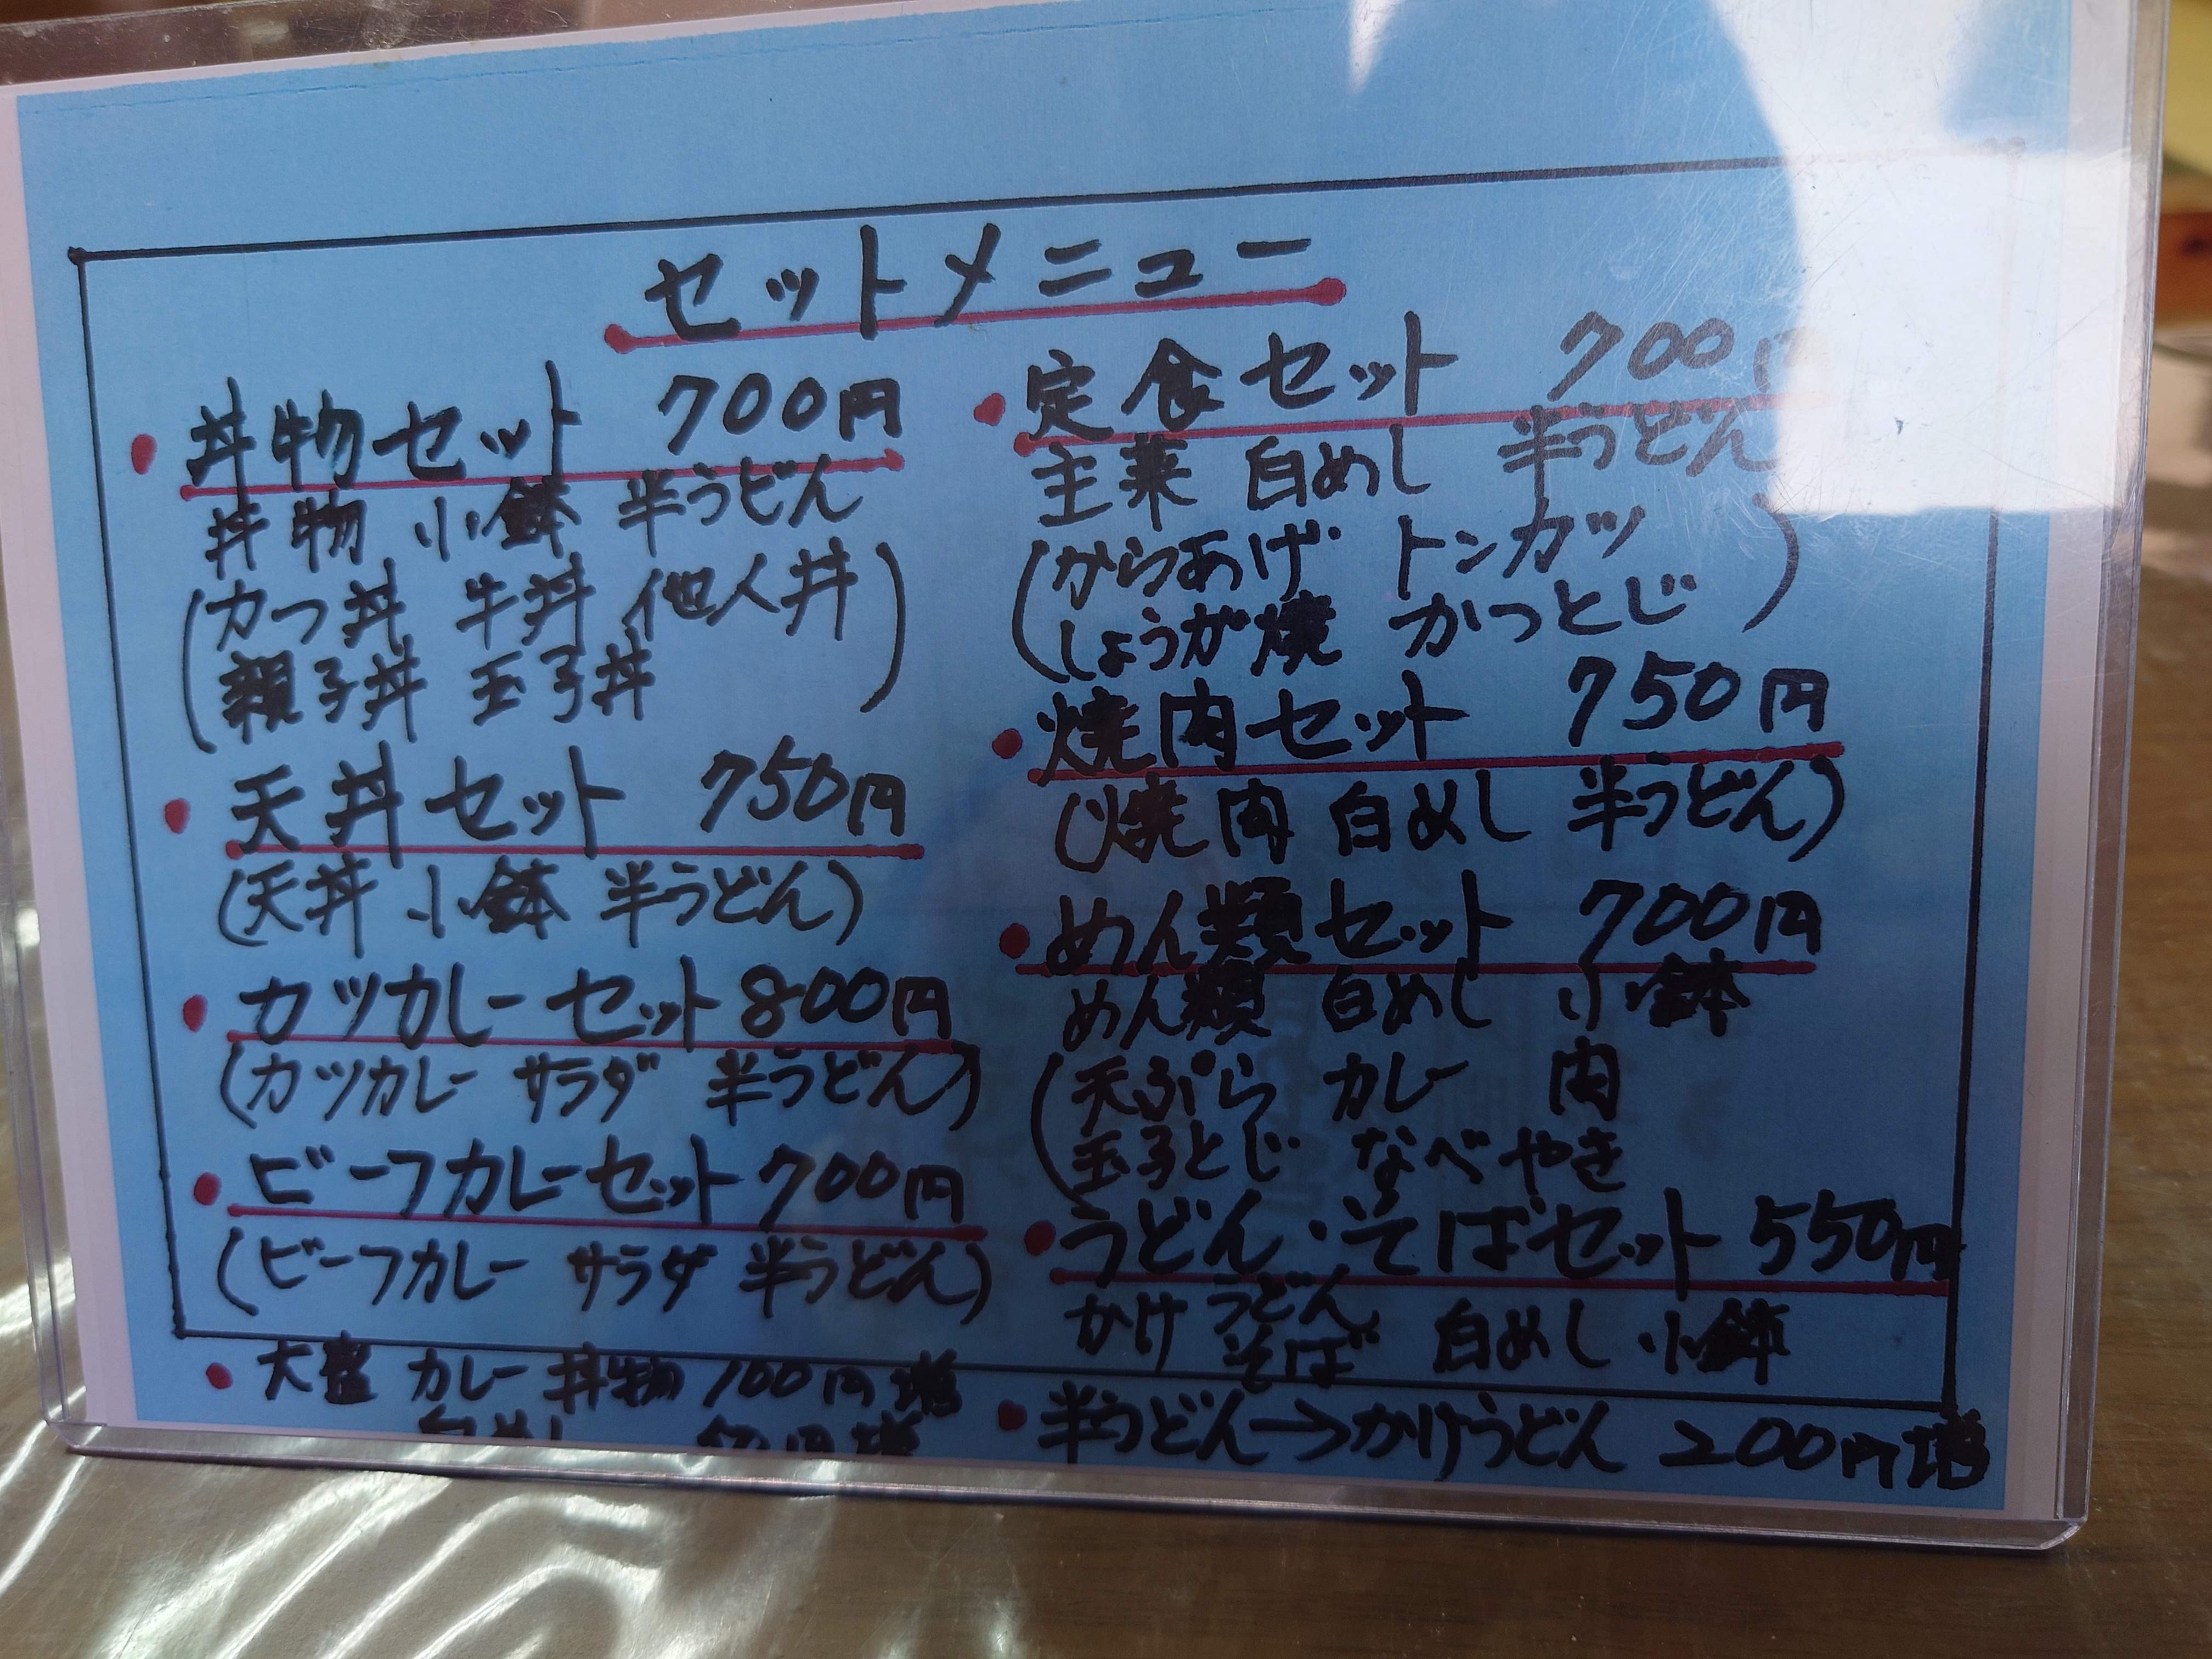 セットメニュー
・丼物セット 700円
丼物 小鉢 半うどん
(カツ丼 牛丼 他人丼
親子丼 玉子丼)
・天丼セット 750円
(天丼 小鉢 半うどん)
・カツカレーセット 800円
(カツカレー サラダ 半うどん)
・ビーフカレーセット 700円
(ビーフカレー サラダ 半うどん)
・大盛 カレー 丼物 100円増
白めし 50円増
・定食セット 700円
主菜 白めし 半うどん
(からあげ トンカツ
しょうが焼 かつとじ)
・焼肉セット 750円
(焼肉 白めし 半うどん)
・めん類セット 700円
めん類 白めし 小鉢
(天ぷら カレー 肉
玉子とじ なべやき
・うどん・そばセット 550円
かけ うどん そば 白めし 小鉢
・半うどん→かけうどん 200円増